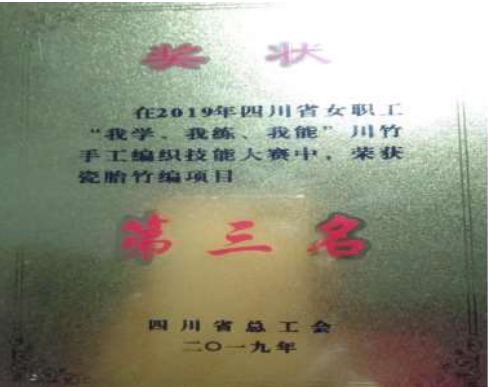 奖状
在2019年四川省女职工
“我学、我练、我能”川竹
手工编织技能大赛中，荣获
瓷胎竹编项目
第三名
四川省总工会
二〇一九年